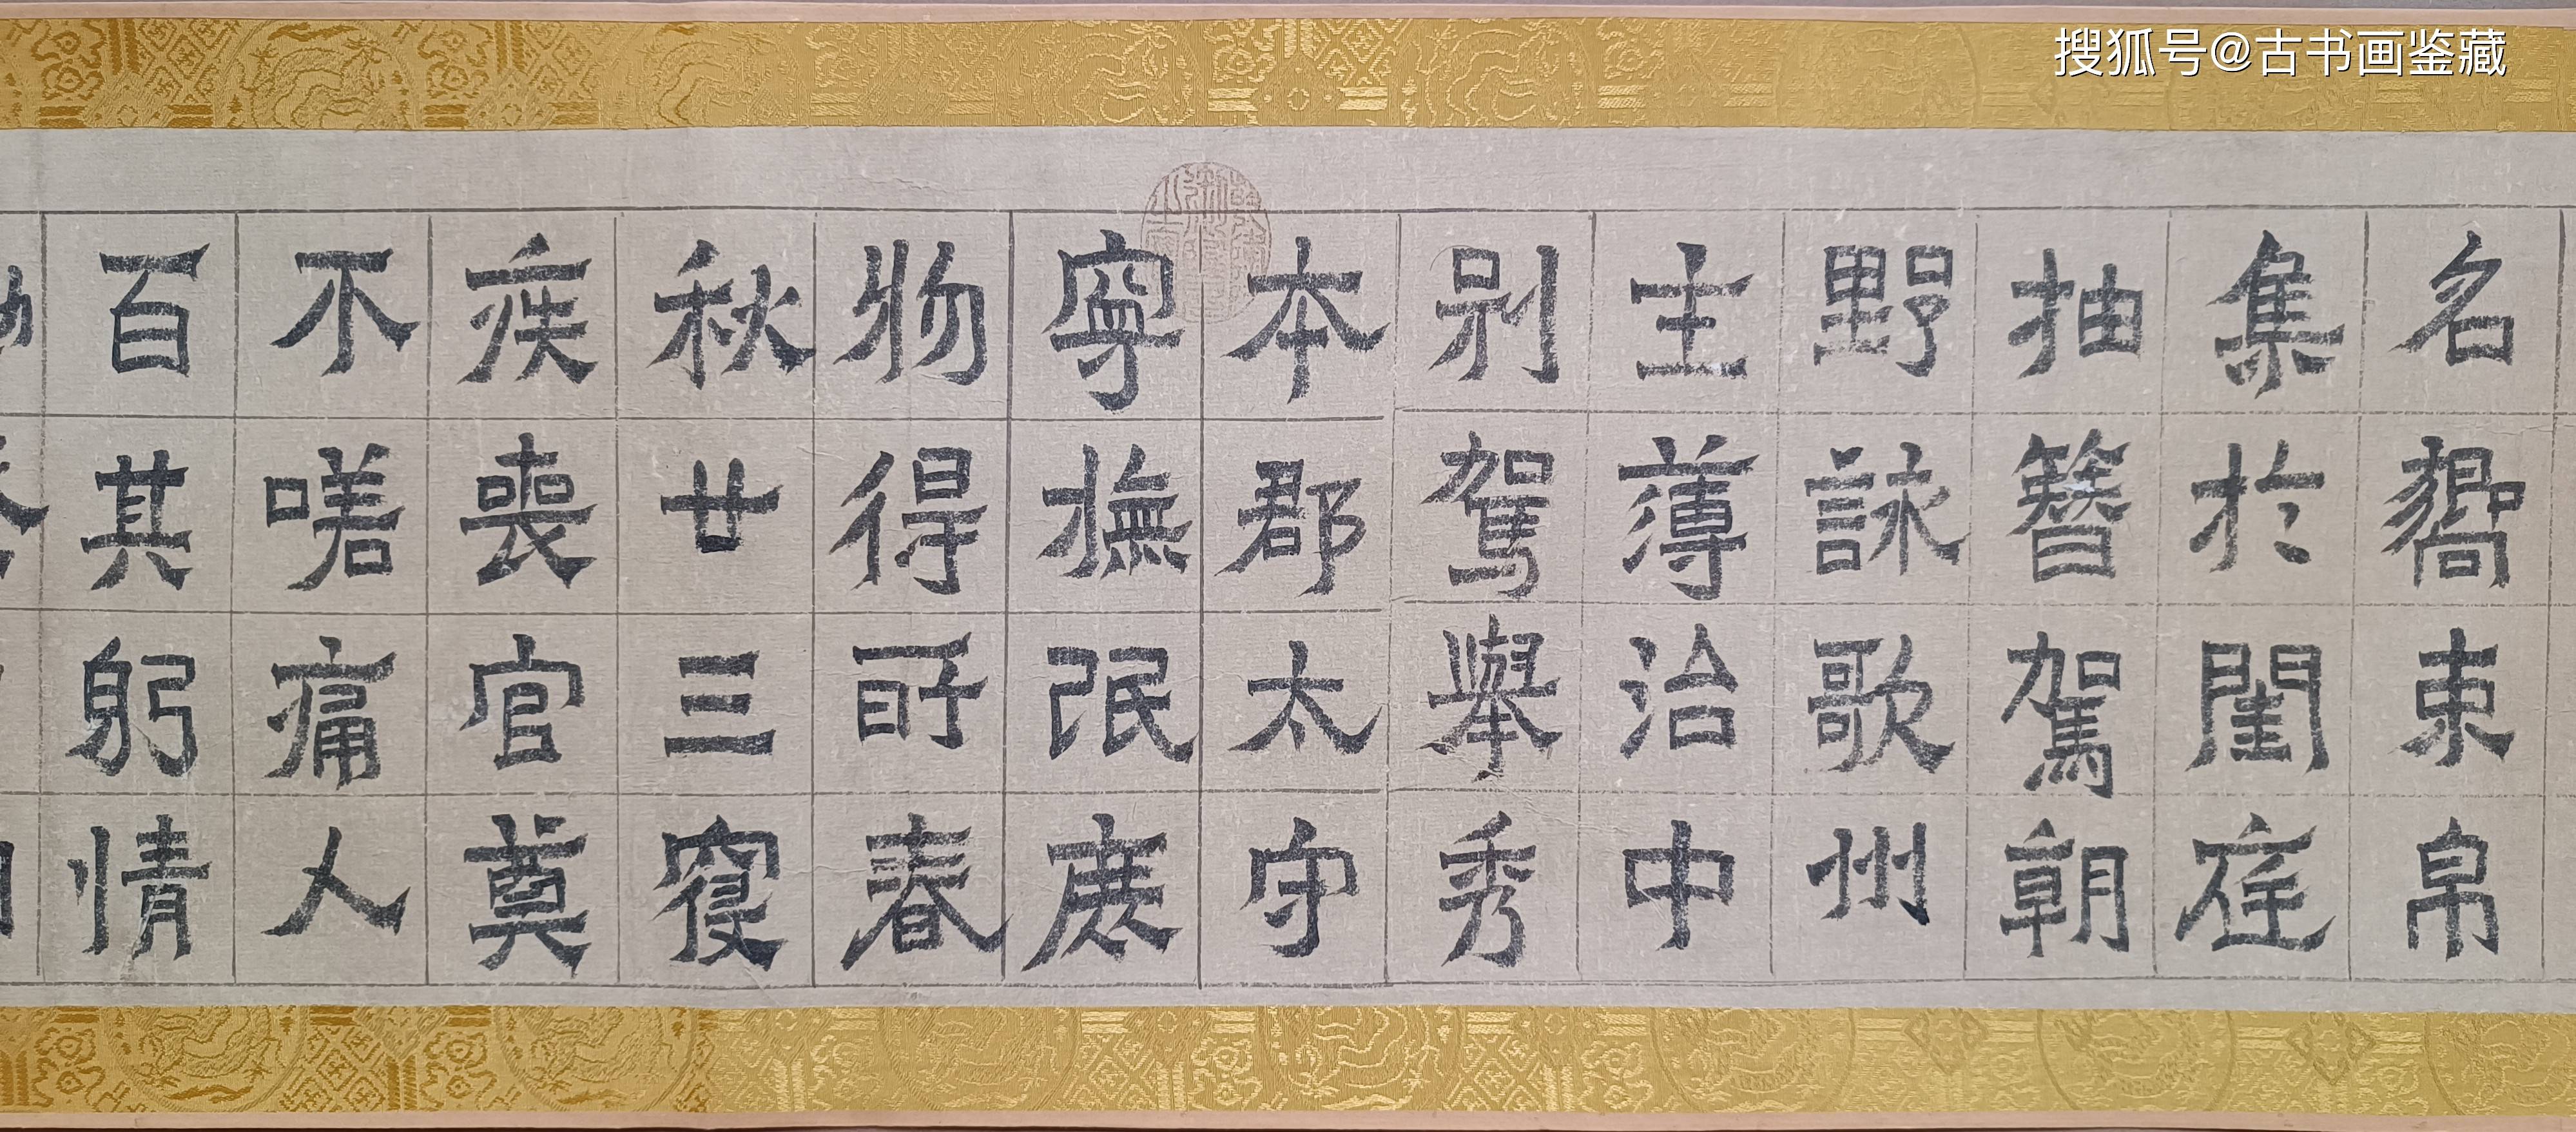 搜狐号@古书画鉴藏
名嚮束帛
集於閨庭
抽簪駕朝
野詠歌州
主薄治中
别駕舉秀
本郡太守
寧撫氓庶
物得所春
秋廿三寢
疾喪官莫
不嗟痛人
百其躬情